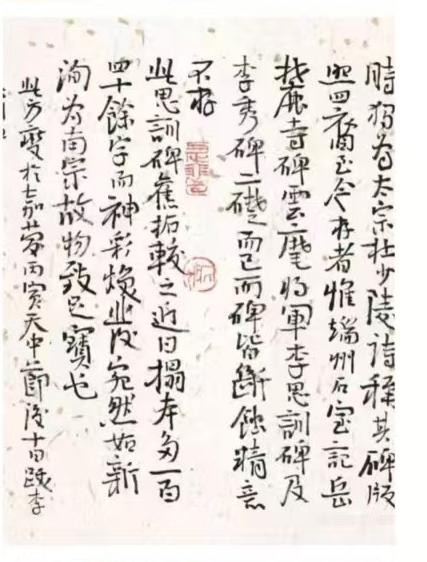 時獨為太宗杜少陵詩稱其碑版
照四裔至今存者惟端州石室記岳
麓寺碑雲麾将軍李思訓碑及
李秀碑二礎而已而碑皆斷蝕精意
不存
此思訓碑舊拓較之近日搨本多一百
四十餘字而神彩煥宛然如新
洵為南宋故物致足寶也
此方於嘉慶丙寅天中節後十日跋李